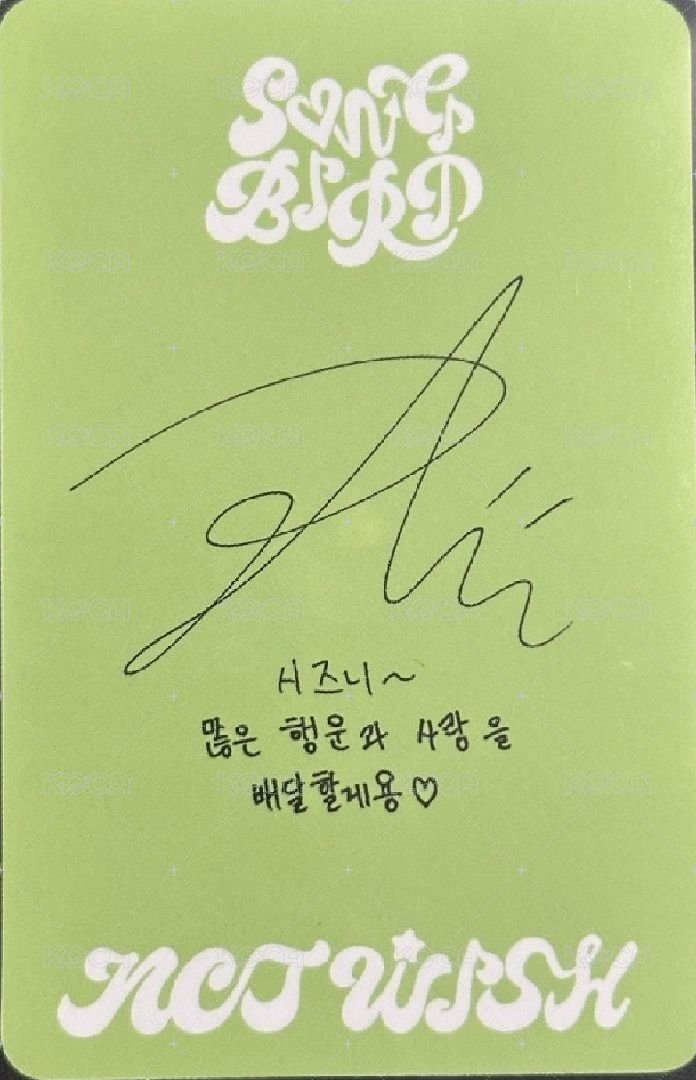 SONG
BIRD
시즈니~
많은 행운과 사랑을
배달할게용♡
NCT WISH